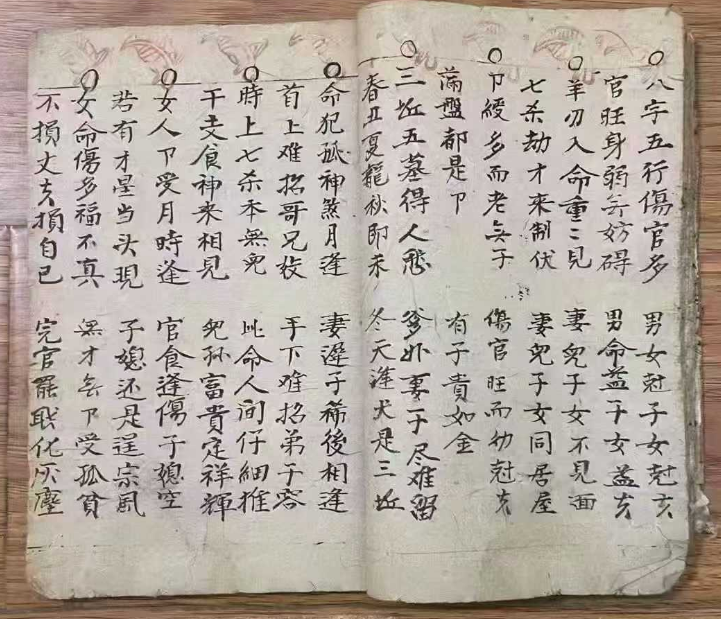 八字五行傷官多 男女尅子女尅夫
官旺身弱無妨碍 男命益子女益夫
羊刃入命重重見 妻兒子女不見面
七杀劫才來制伏 妻兒子女同居屋
卩綬多而老無子 傷官旺而幼尅夫
滿盤都是卩 有子貴如金
三坵五墓得人愁 爹妳妻子尽难留
春丑夏龍秋即未 冬天逢犬是三坵
命犯孤神煞月逢 妻遲子希後相逢
首上难招哥兄弟 手下难招弟子容
時上七杀本無兒 此命人间仔細推
干支食神来相見 兒孙富貴定祥輝
女人卩受月時逢 官食逢傷子媳空
若有才星当头現 子媳还是逞宗風
女命傷多福不真 無才無卩受孤貧
不損丈夫損自己 完官罷職化灰塵